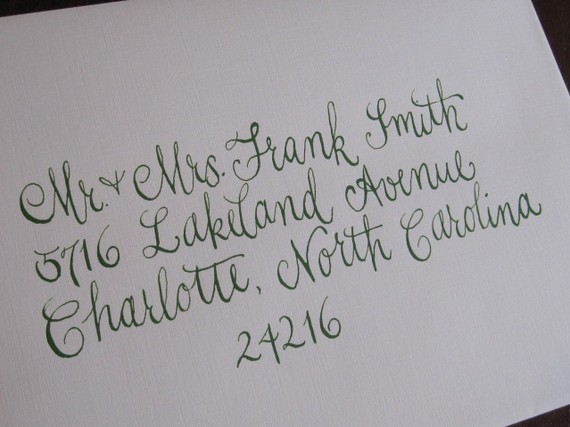 Mr. & Mrs. Frank Smith
5716 Lakeland Avenue
Charlotte, North Carolina
24216